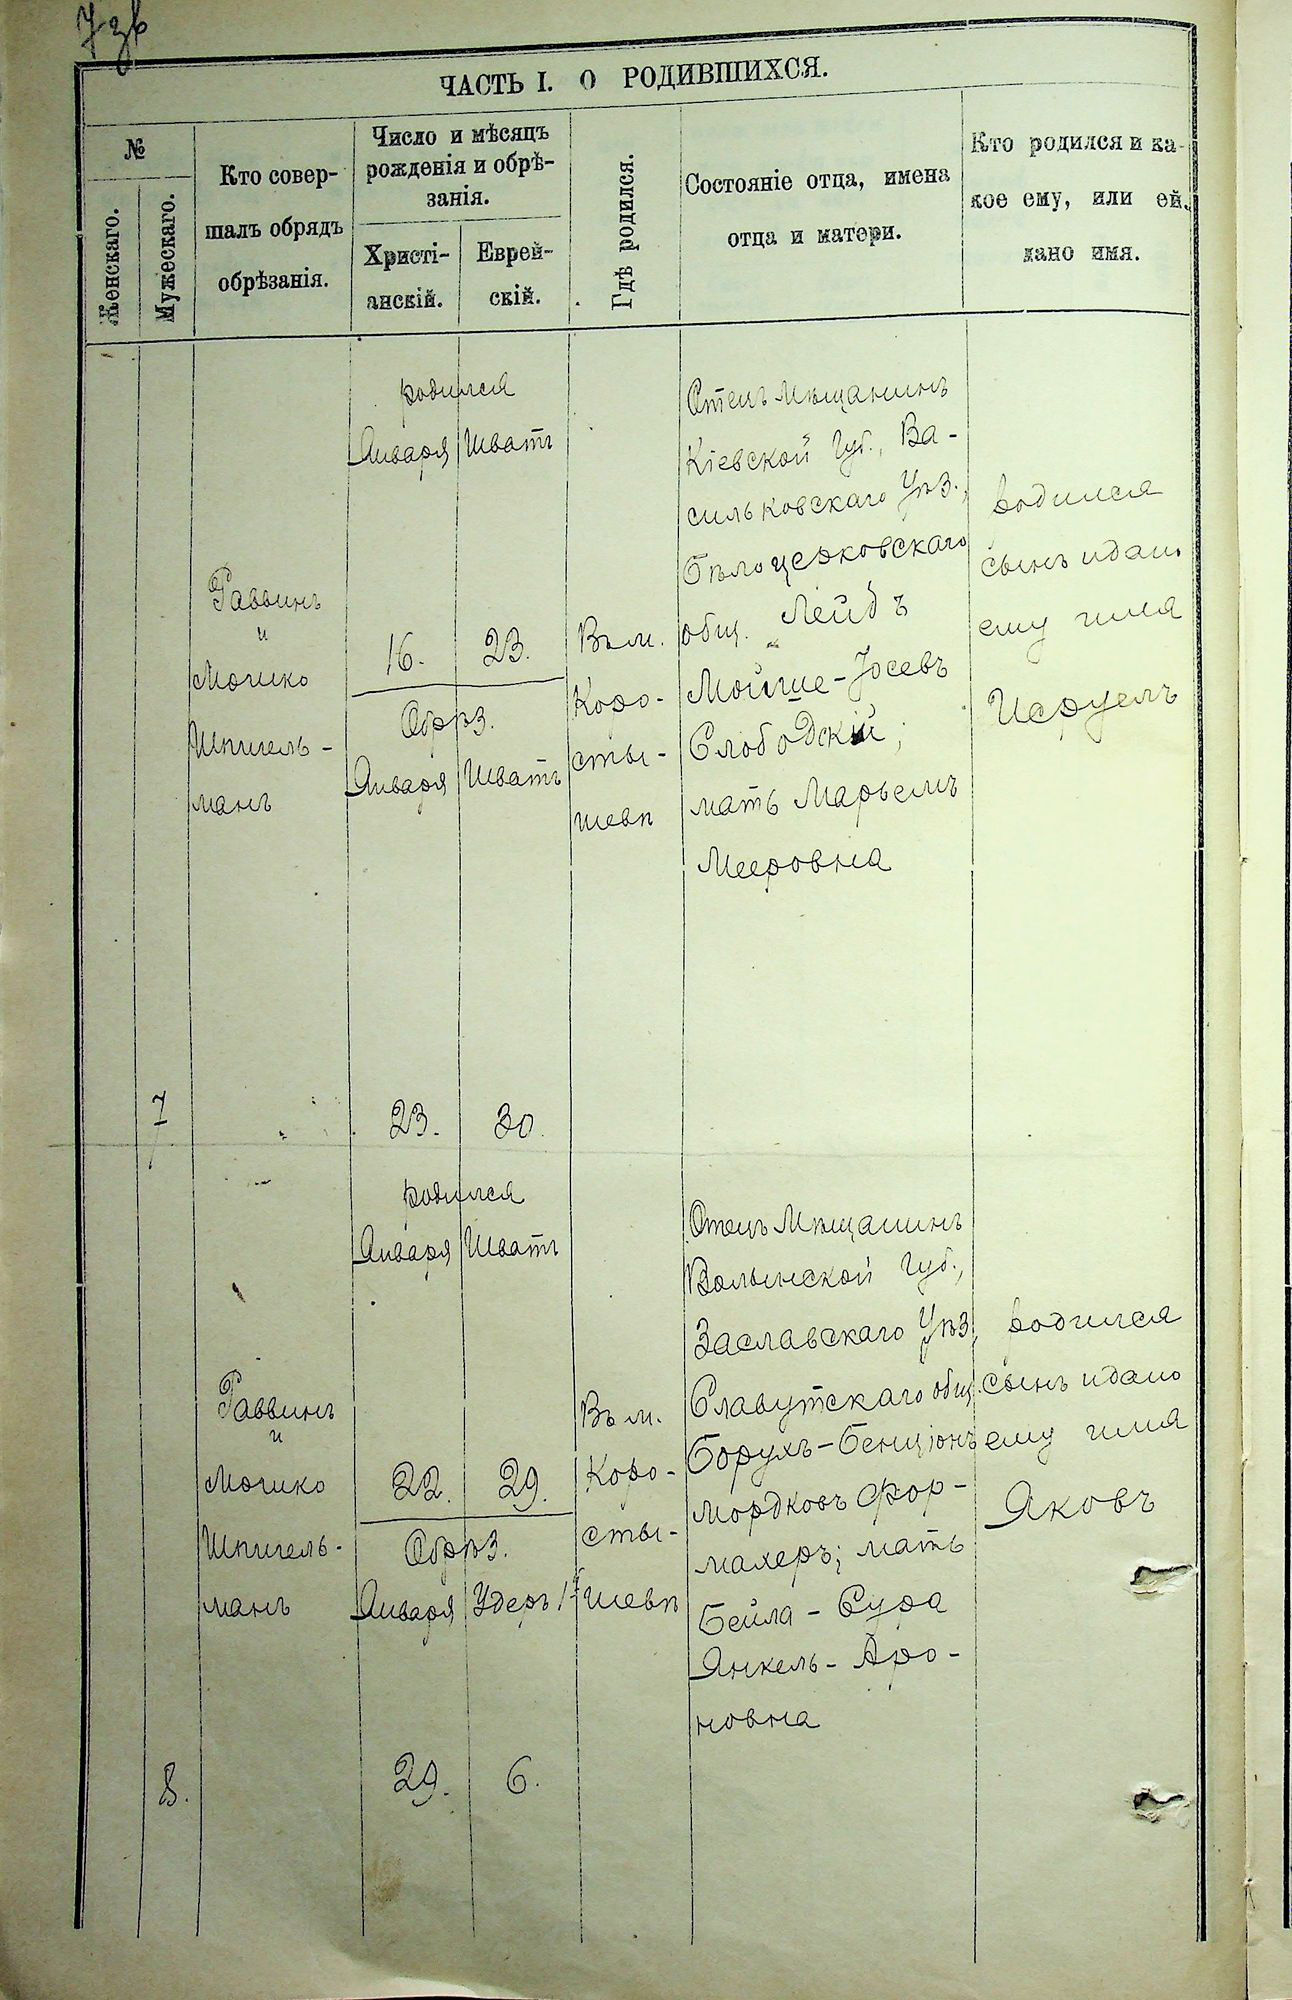 7 зв
ЧАСТЬ I. О РОДИВШИХСЯ.
№
Женскаго.
Мужескаго.
Кто совер-
шалъ обрядъ
обрѣзанія.
Число и мѣсяцъ
рожденія и обрѣ-
занія.
Христі-
анскій.
Еврей-
скій.
Гдѣ родился.
Состояніе отца, имена
отца и матери.
Кто родился и ка-
кое ему, или ей,
дано имя.
7
Раввинъ
и
Мошко
Шпигель-
манъ
родился
Января Шватъ
16. 23.
Обрѣз.
Января Шватъ
23. 30.
Въ м.
Коро-
сты-
шевѣ
Отецъ Мѣщанинъ
Кіевской Губ., Ва-
сильковскаго Уѣз.,
Бѣлоцерковскаго
общ. Лейбъ
Мойше-Іосевъ
Слободскій;
мать Марьемъ
Мееровна
родился
сынъ и дано
ему имя
Исруелъ
8.
Раввинъ
и
Мошко
Шпигель-
манъ
родился
Января Шватъ
22. 29.
Обрѣз.
Января Удеръ 1й
29. 6.
Въ м.
Коро-
сты-
шевѣ
Отецъ Мѣщанинъ
Волынской Губ.,
Заславскаго Уѣз,
Славутскаго общ.
Борухъ-Бенціонъ
Мордковъ Фор-
махеръ; мать
Бейла-Сура
Янкель-Аро-
новна
родился
сынъ и дано
ему имя
Яковъ